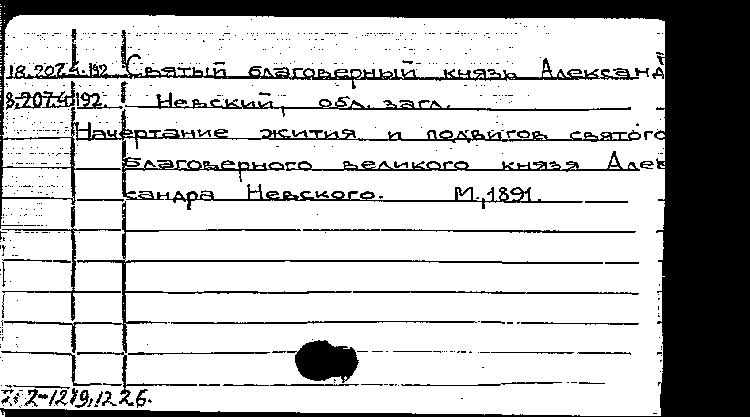 18.207.4.192 Святый благоверный князь Александ
8.207.4.192. Невский, обл. загл.
Начертание жития и подвигов святого
благоверного великого князя Алек
сандра Невского. М.,1891.
2-1219,1226.